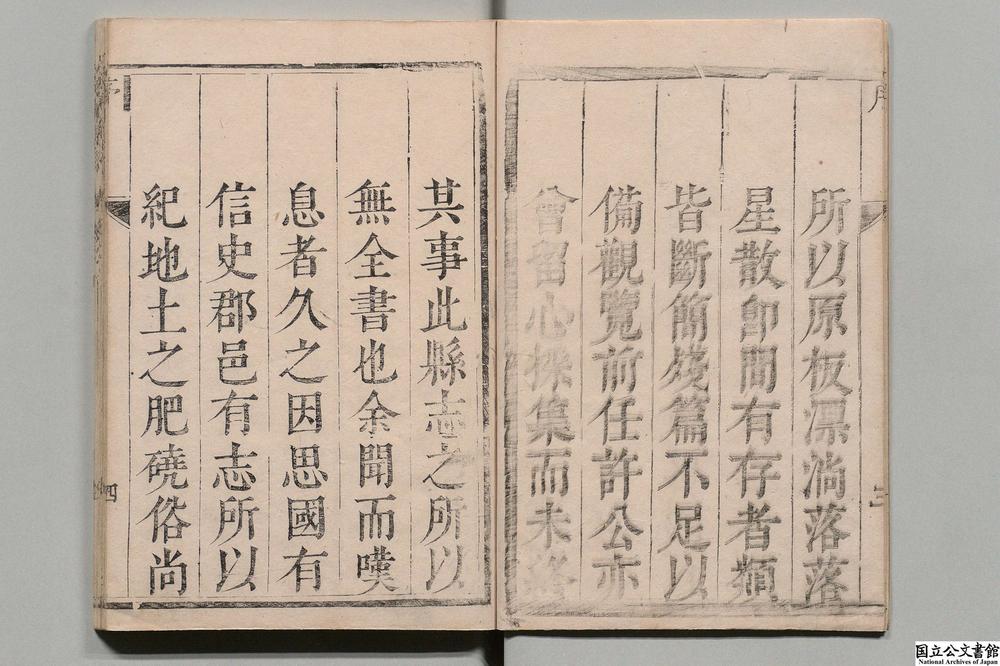 序
三
所以原板漂淌落落
星散卽間有存者類
皆斷簡殘篇不足以
備觀覽前任許公亦
曾留心採集而未終
其事此縣志之所以
無全書也余聞而嘆
息者久之因思國有
信史郡邑有志所以
紀地土之肥磽俗尚
四
国立公文書館
National Archives of Japan